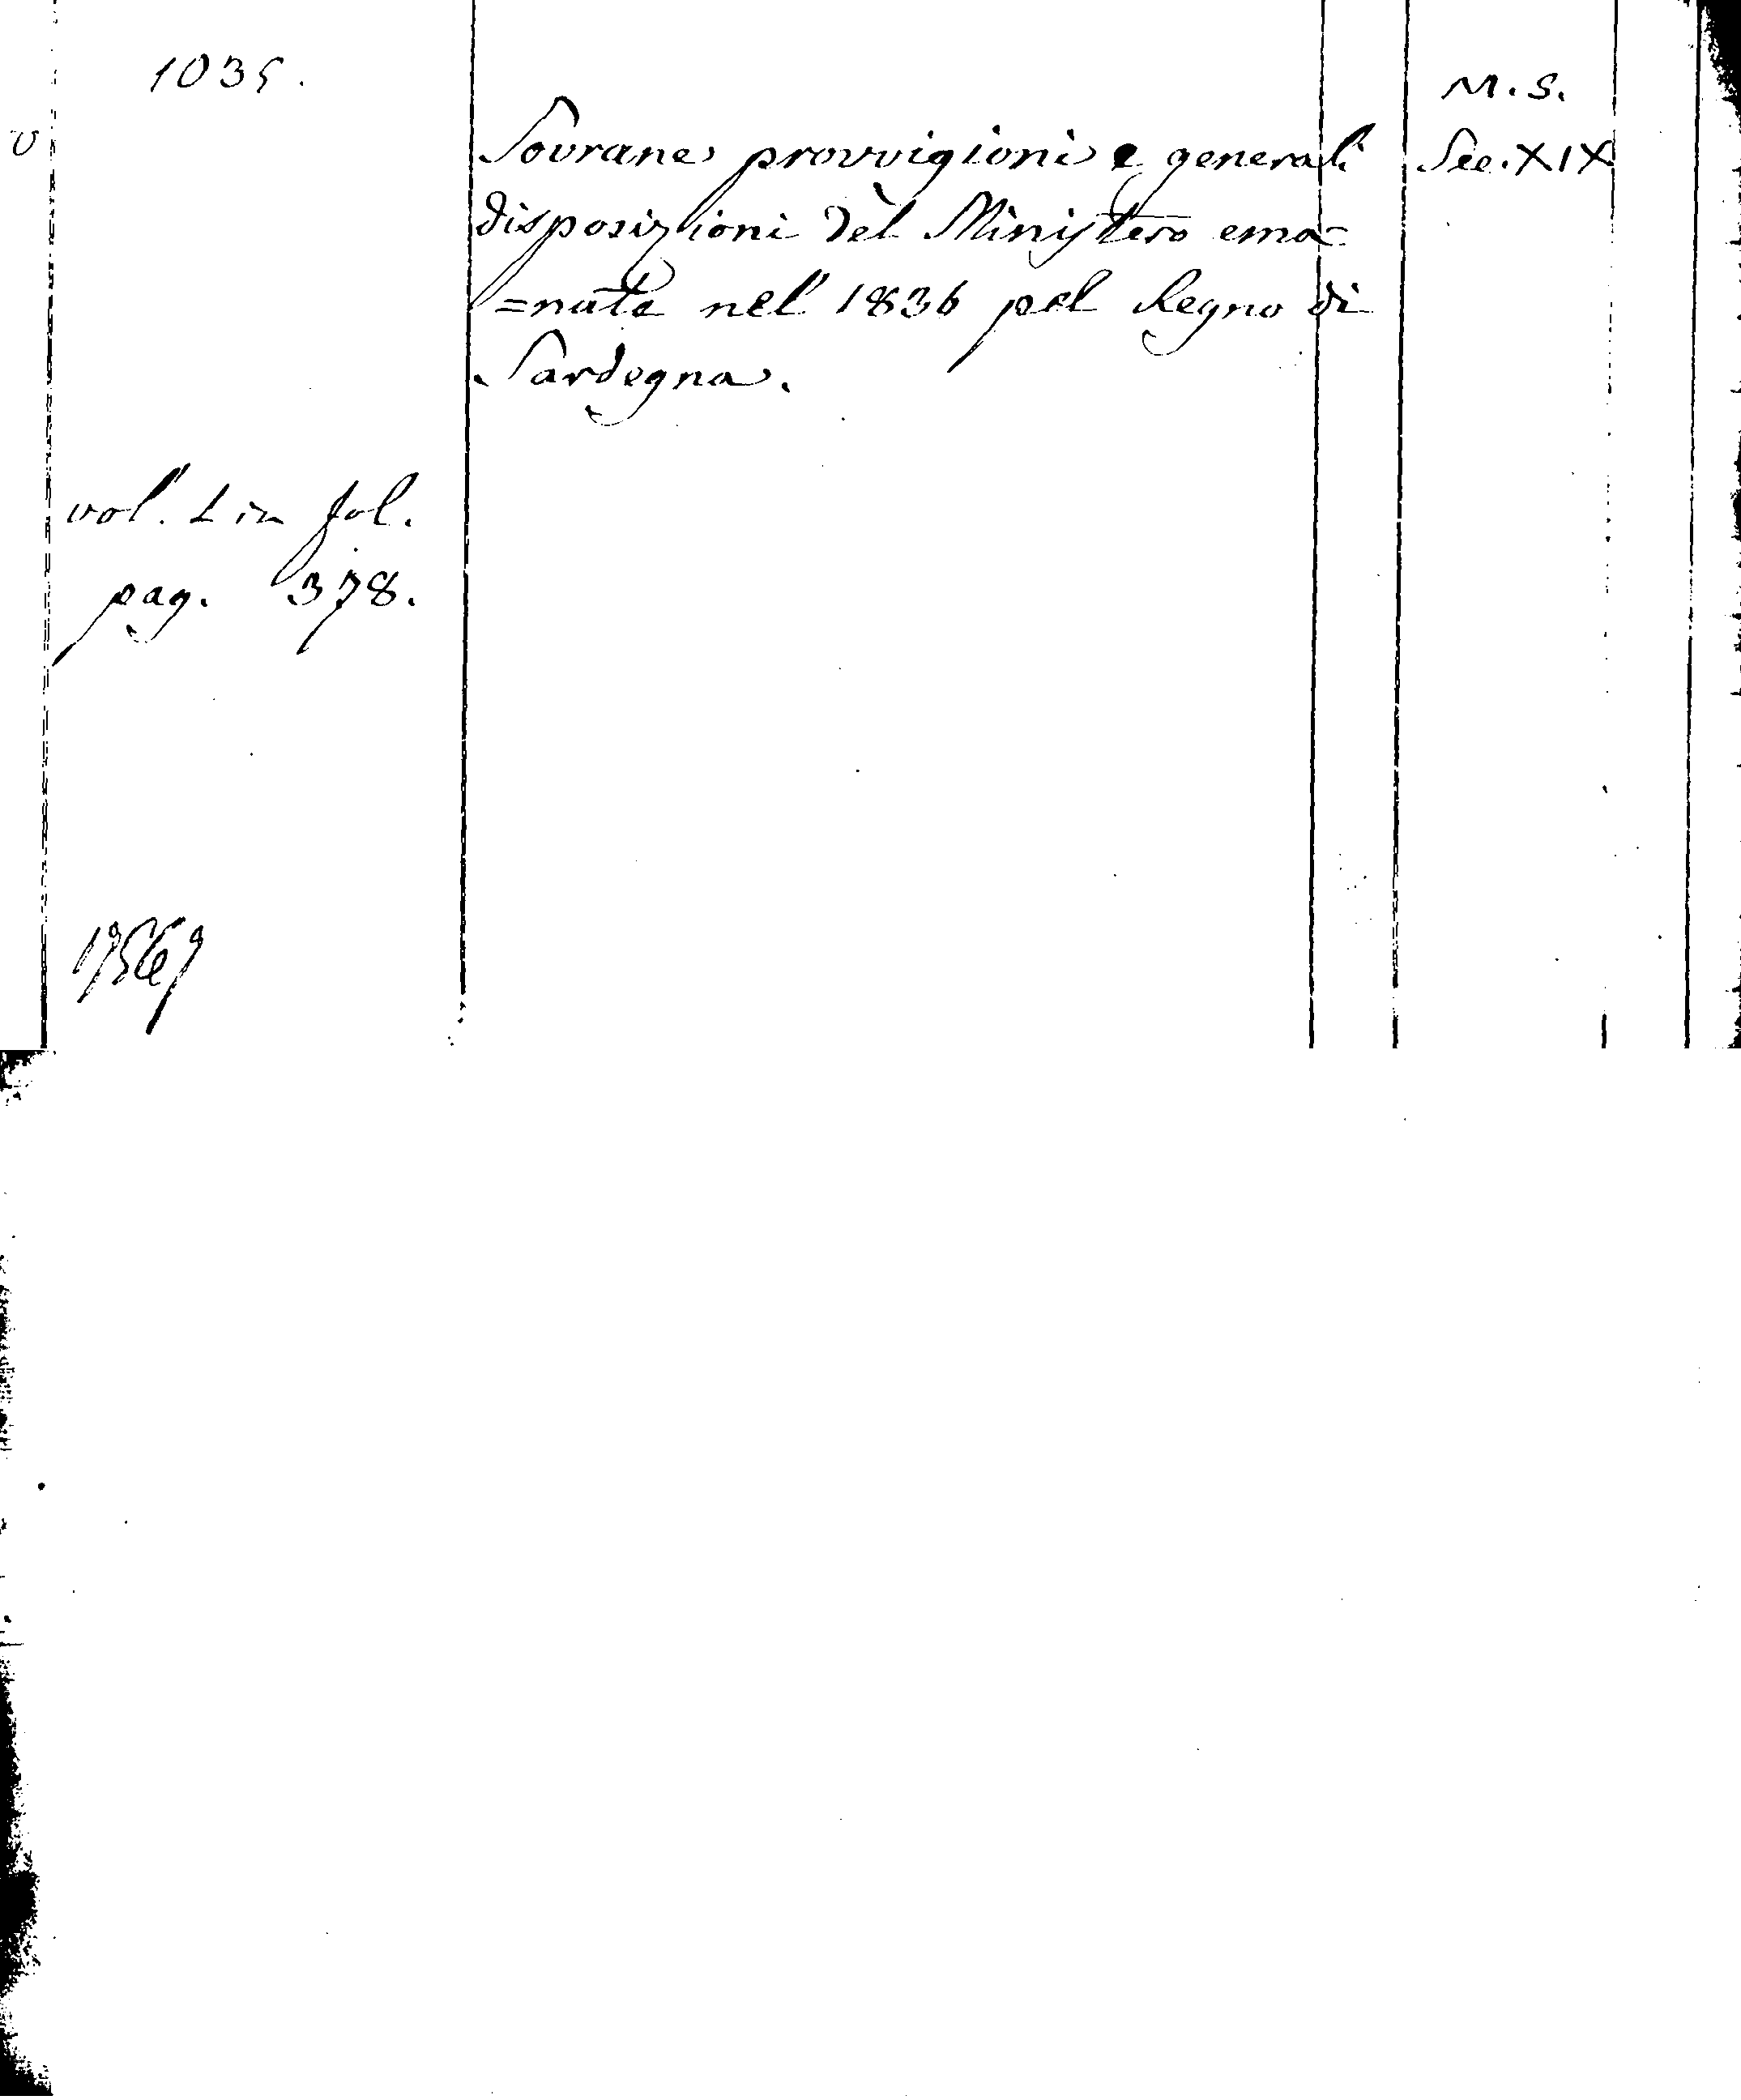 1035.
M. S.
v
Sovrane provvigioni e generali
Sec. XIX
disposizioni del Ministero ema=
=nate nel 1836 pel Regno di
Sardegna.
vol. 1 in fol.
pag. 378.